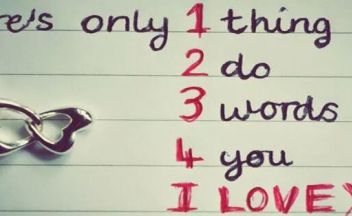 re's only 1 thing
2 do
3 words
4 you
I LOVE